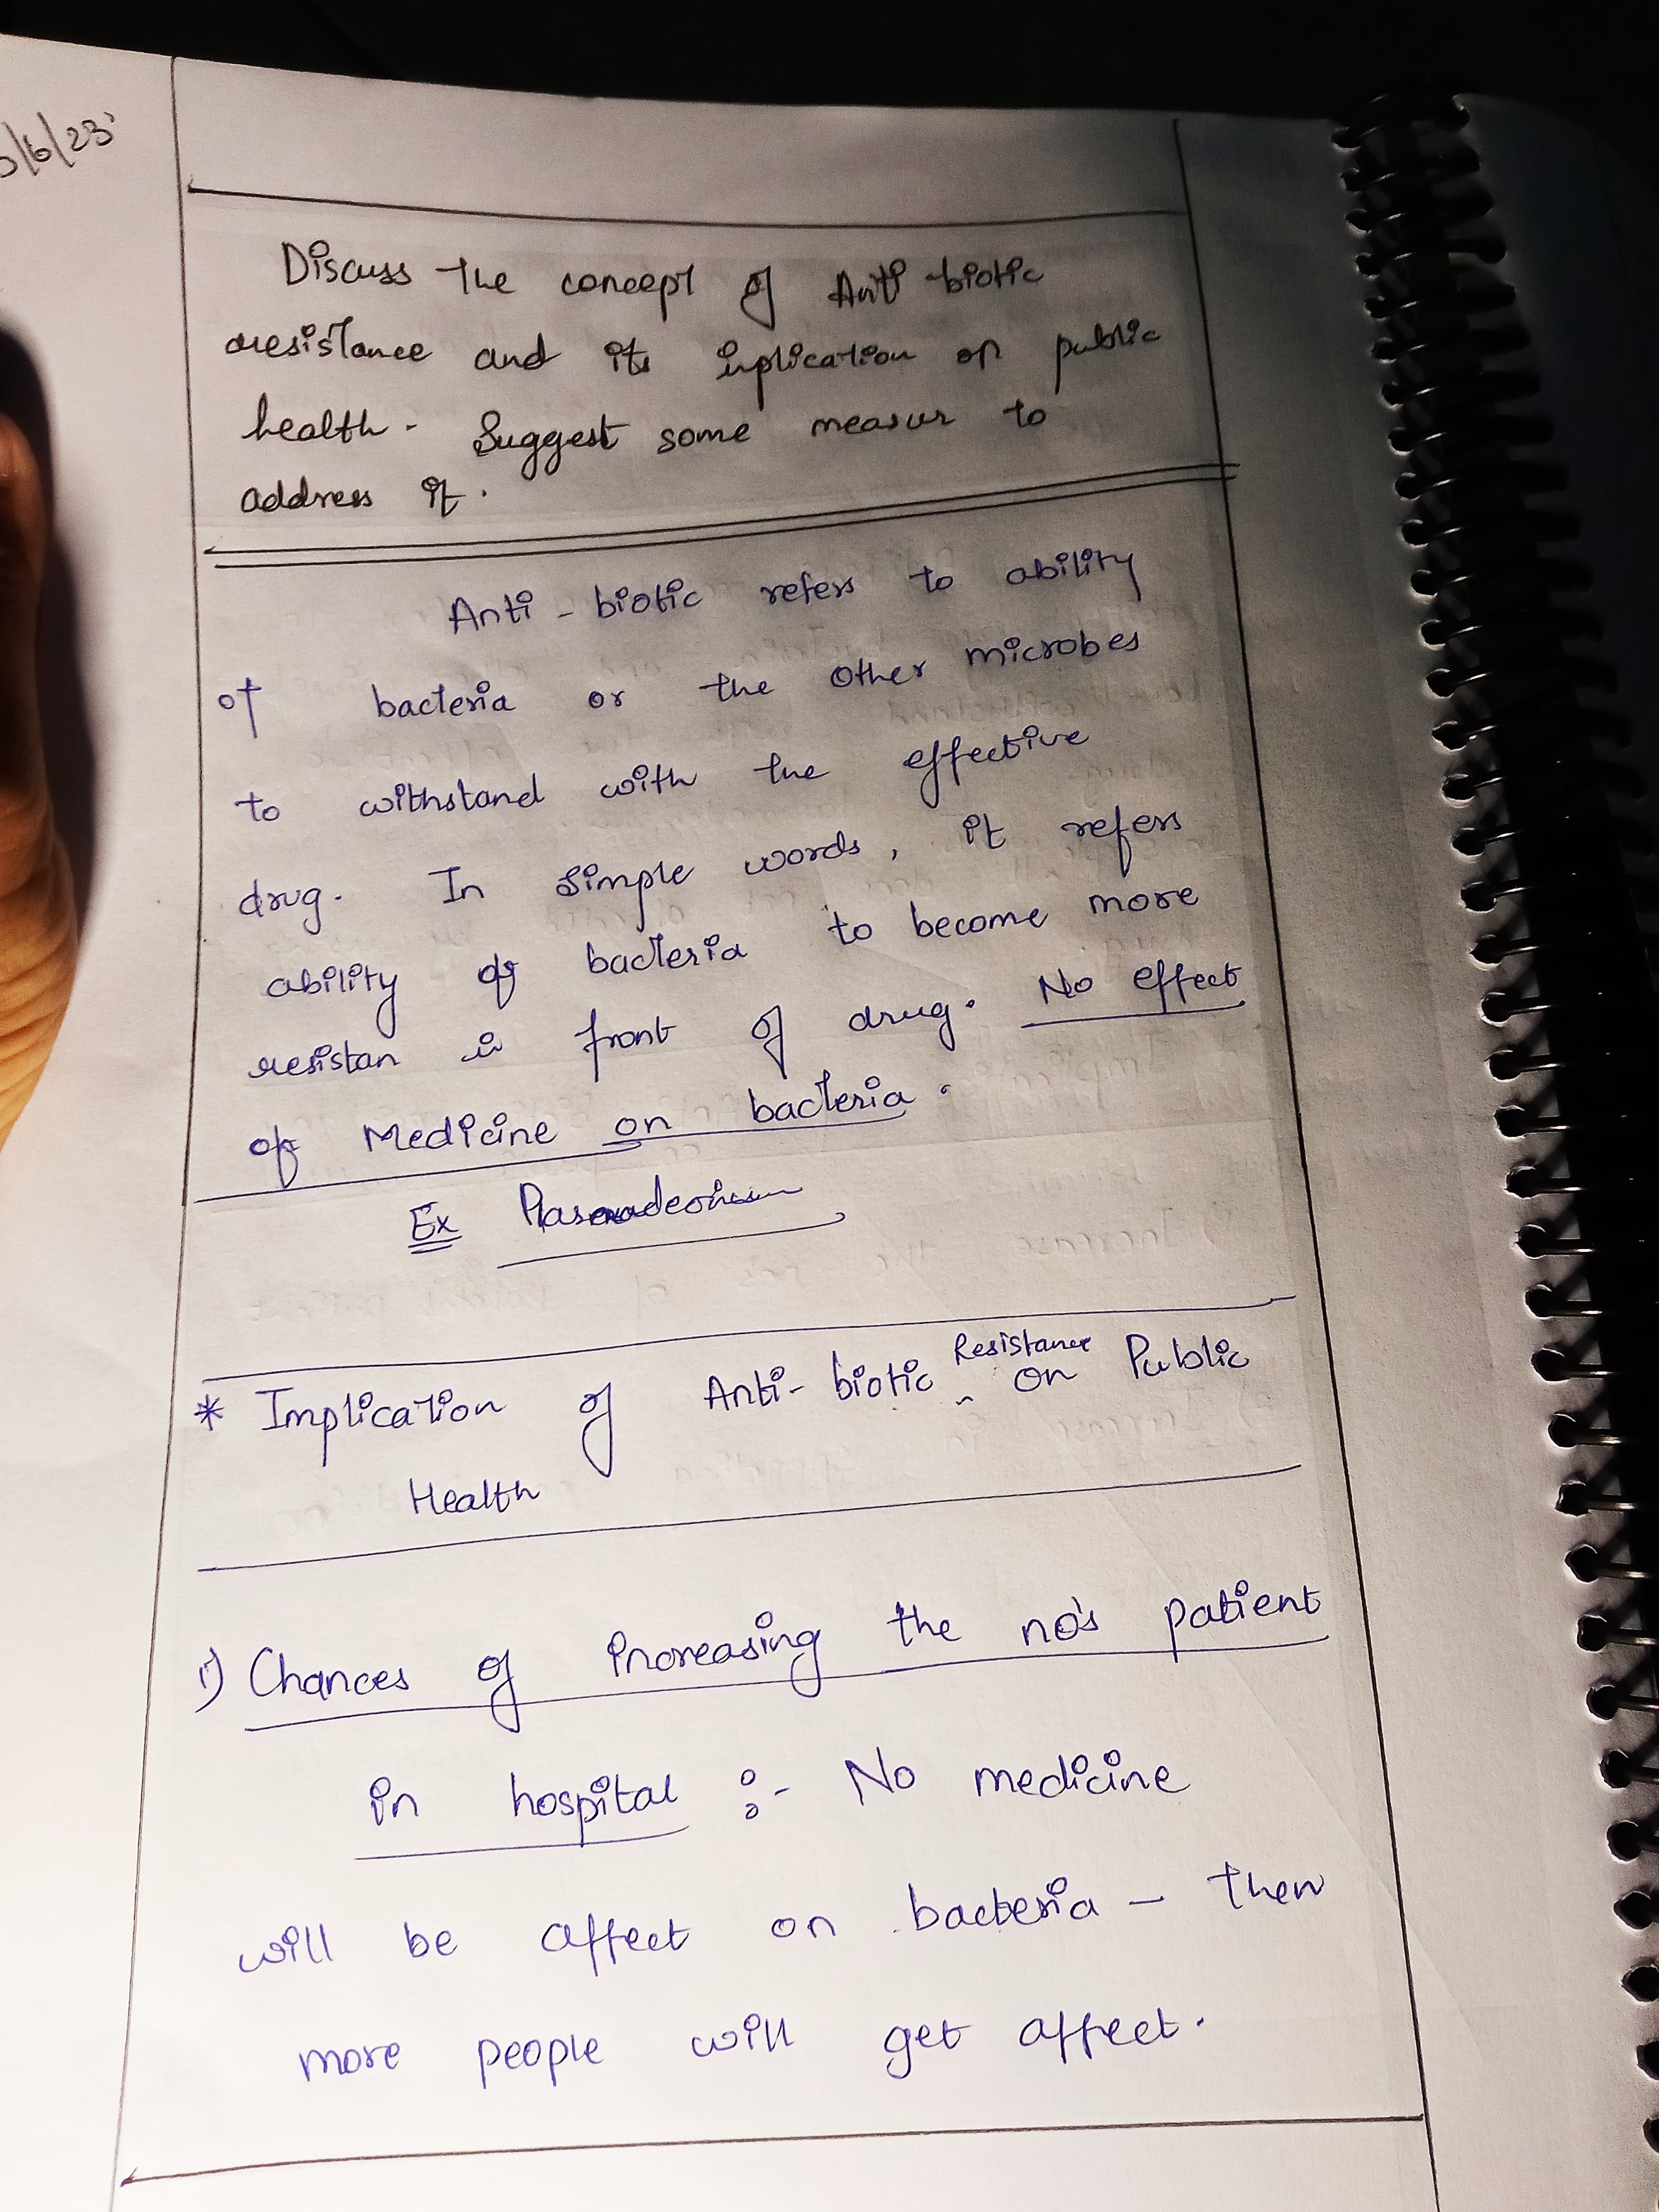 /6/23
Discuss the concept of Anti biotic
resistance and its inplication on public
health. Suggest some measur to
address it.
Anti - biotic refers to ability
of bacteria or the other microbes
to withstand with the effective
drug. In simple words, it refers
ability of bacteria to become more
resistan in front of drug. No effect
of Medicine on bacteria.
Ex
* Implication of Anti-biotic Resistance on Public
Health
1) Chances of increasing the no's patient
in hospital :- No medicine
will be affect on bacteria - then
more people will get affect.